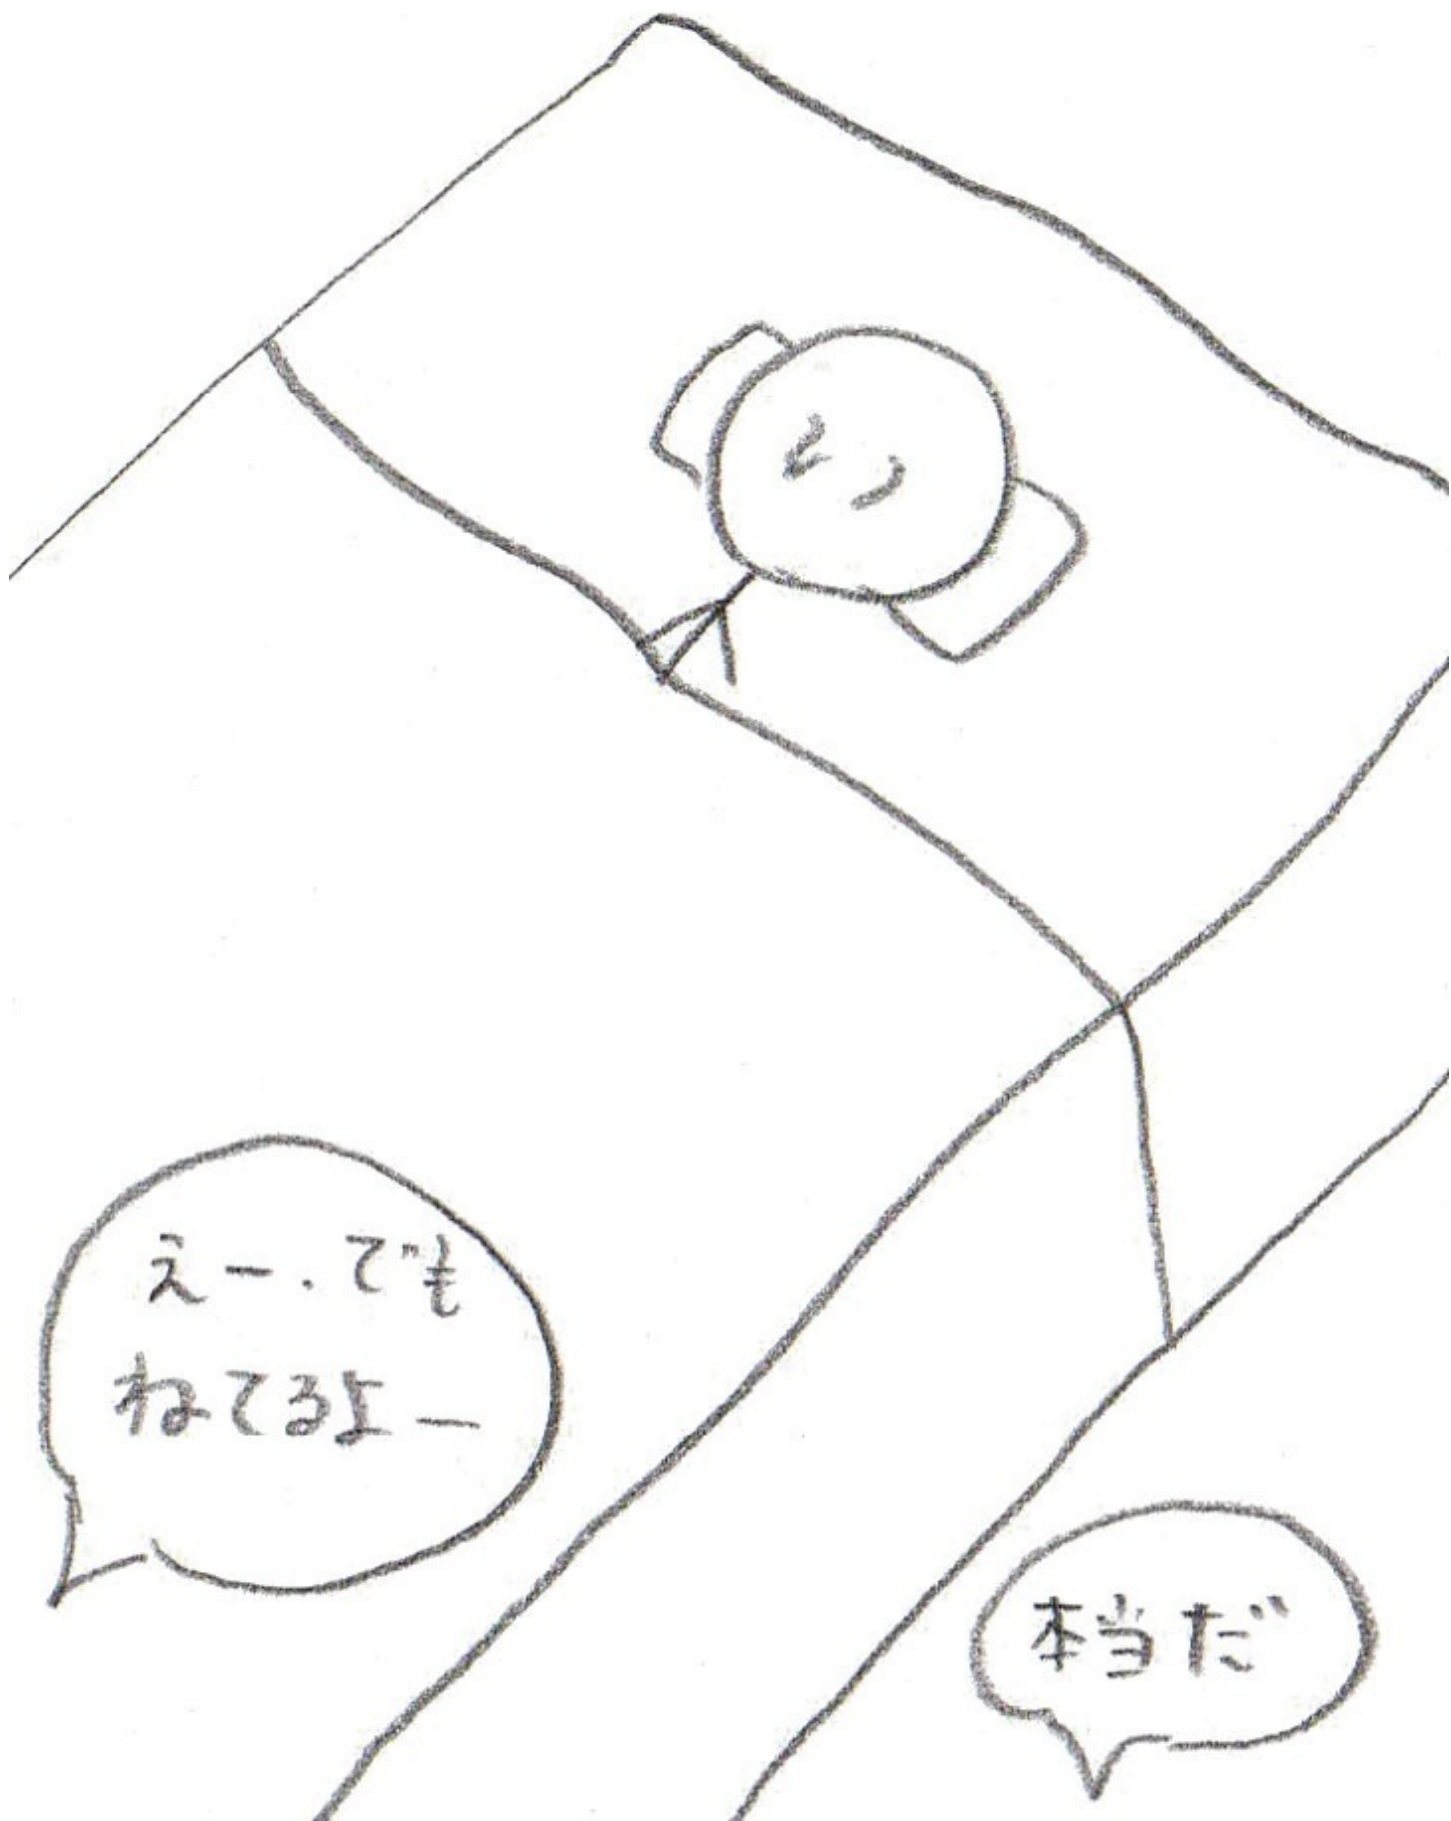 えー.でも
ねてるよー
本当だ